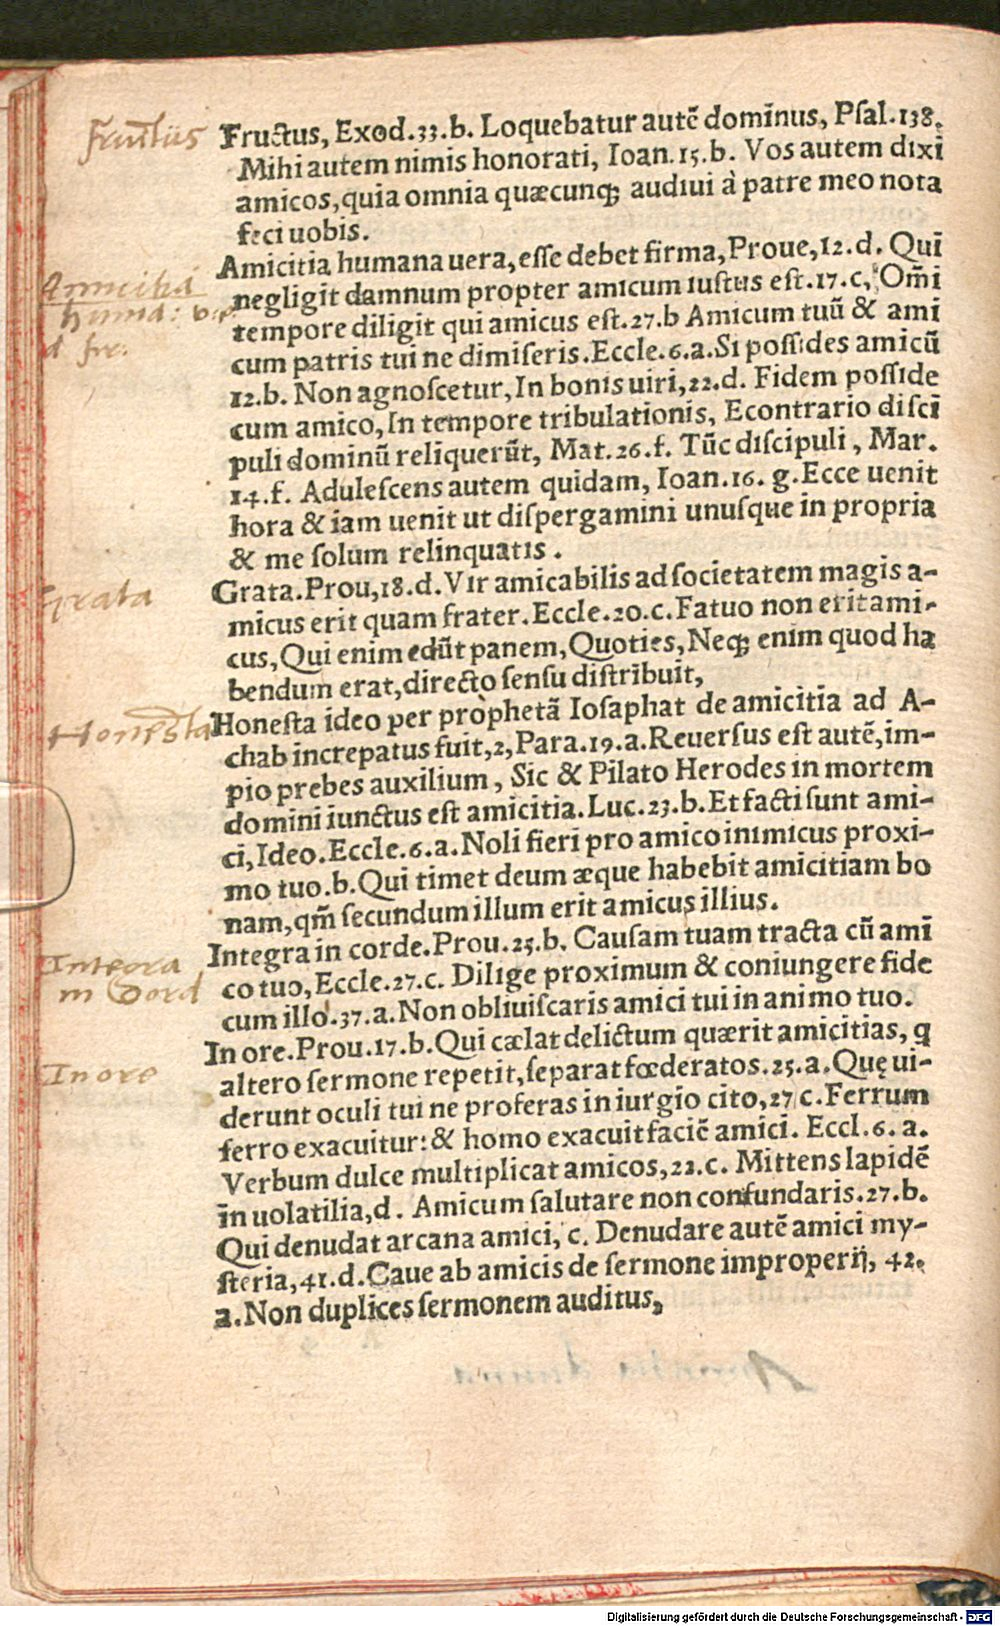 Fructus
Fructus, Exod.33.b. Loquebatur autē dominus, Psal.138.
Mihi autem nimis honorati, Ioan.15.b. Vos autem dixi
amicos, quia omnia quæcunq; audiui à patre meo nota
feci uobis.
Amicitia
huma: ver
Amicitia humana uera, esse debet firma, Proue,12.d. Qui
negligit damnum propter amicum iustus est.17.c, Om̄i
tempore diligit qui amicus est.27.b Amicum tuū & ami
cum patris tui ne dimiseris. Eccle.6.a. Si possides amicū
12.b. Non agnoscetur, In bonis uiri,22.d. Fidem posside
cum amico, In tempore tribulationis, Econtrario disci
puli dominū reliquerūt, Mat.26.f. Tūc discipuli, Mar.
14.f. Adulescens autem quidam, Ioan.16. g. Ecce uenit
hora & iam uenit ut dispergamini unusque in propria
& me solum relinquatis.
Grata
Grata. Prou,18.d. Vir amicabilis ad societatem magis a-
micus erit quam frater. Eccle.20.c. Fatuo non erit ami-
cus, Qui enim edūt panem, Quoties, Neq; enim quod ha
bendum erat, directo sensu distribuit,
Honesta
Honesta ideo per pròphetā Iosaphat de amicitia ad A-
chab increpatus fuit,2, Para.19.a. Reuersus est autē, im-
pio prebes auxilium, Sic & Pilato Herodes in mortem
domini iunctus est amicitia. Luc.23.b. Et facti sunt ami-
ci, Ideo. Eccle.6.a. Noli fieri pro amico inimicus proxi-
mo tuo.b. Qui timet deum æque habebit amicitiam bo
nam, qm̄ secundum illum erit amicus illius.
Integra
in Cord
Integra in corde. Prou.25.b. Causam tuam tracta cū ami
co tuo, Eccle.27.c. Dilige proximum & coniungere fide
cum illo.37.a. Non obliuiscaris amici tui in animo tuo.
In ore
In ore. Prou.17.b. Qui cælat delictum quærit amicitias, q
altero sermone repetit, separat fœderatos.25.a. Quę ui-
derunt oculi tui ne proferas in iurgio cito,27 c. Ferrum
ferro exacuitur: & homo exacuit faciē amici. Eccl.6.a.
Verbum dulce multiplicat amicos,22.c. Mittens lapidē
in uolatilia,d. Amicum salutare non confundaris.27.b.
Qui denudat arcana amici, c. Denudare autē amici my-
steria,41.d. Caue ab amicis de sermone improperij, 42.
a. Non duplices sermonem auditus,
Digitalisierung gefördert durch die Deutsche Forschungsgemeinschaft - DFG